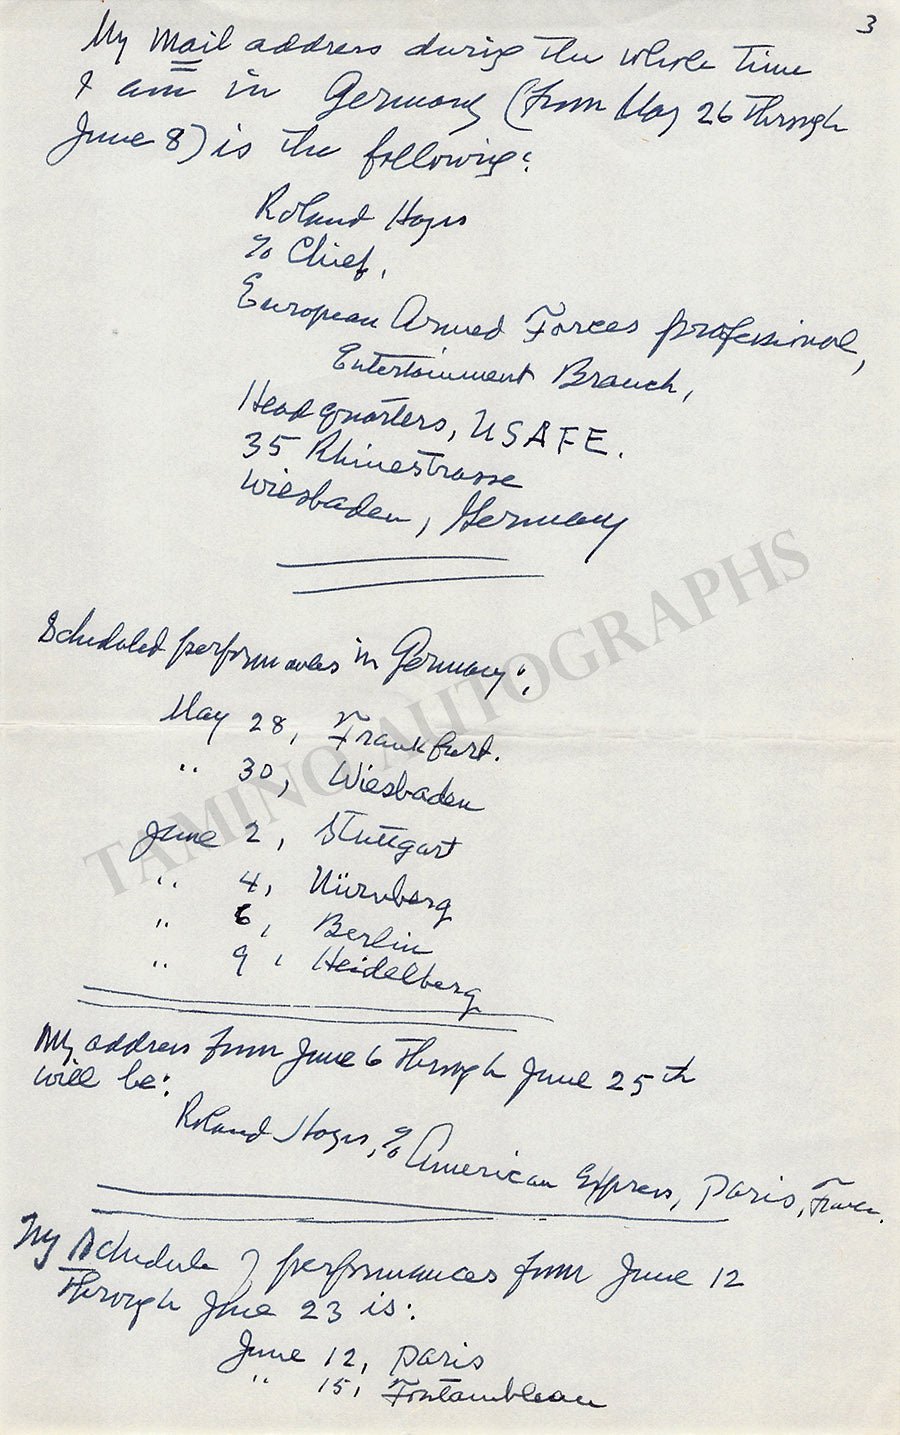 3
My mail address during the whole time
I am in Germany (from May 26 through
June 8) is the following:
Roland Hayes
% Chief,
European Armed Forces professional,
Entertainment Branch,
Headquarters, USAFE.
35 Rhinestrasse
Wiesbaden, Germany
Scheduled performances in Germany:,
May 28, Frankfurt.
" 30, Wiesbaden
June 2, Stuttgart
" 4, Nürnberg
" 6, Berlin
" 9, Heidelberg
TAMINO AUTOGRAPHS
My address from June 6 through June 25th
will be:
Roland Hayes, % American Express, Paris, France.
My Schedule of performances from June 12
through June 23 is:
June 12, Paris
" 15, Fontainbleau